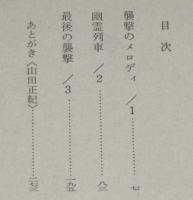 目次
襲撃のメロディ／1……………七
幽霊列車／2……………八三
最後の襲撃／3……………一九五
あとがき〈山田正紀〉……………二七三